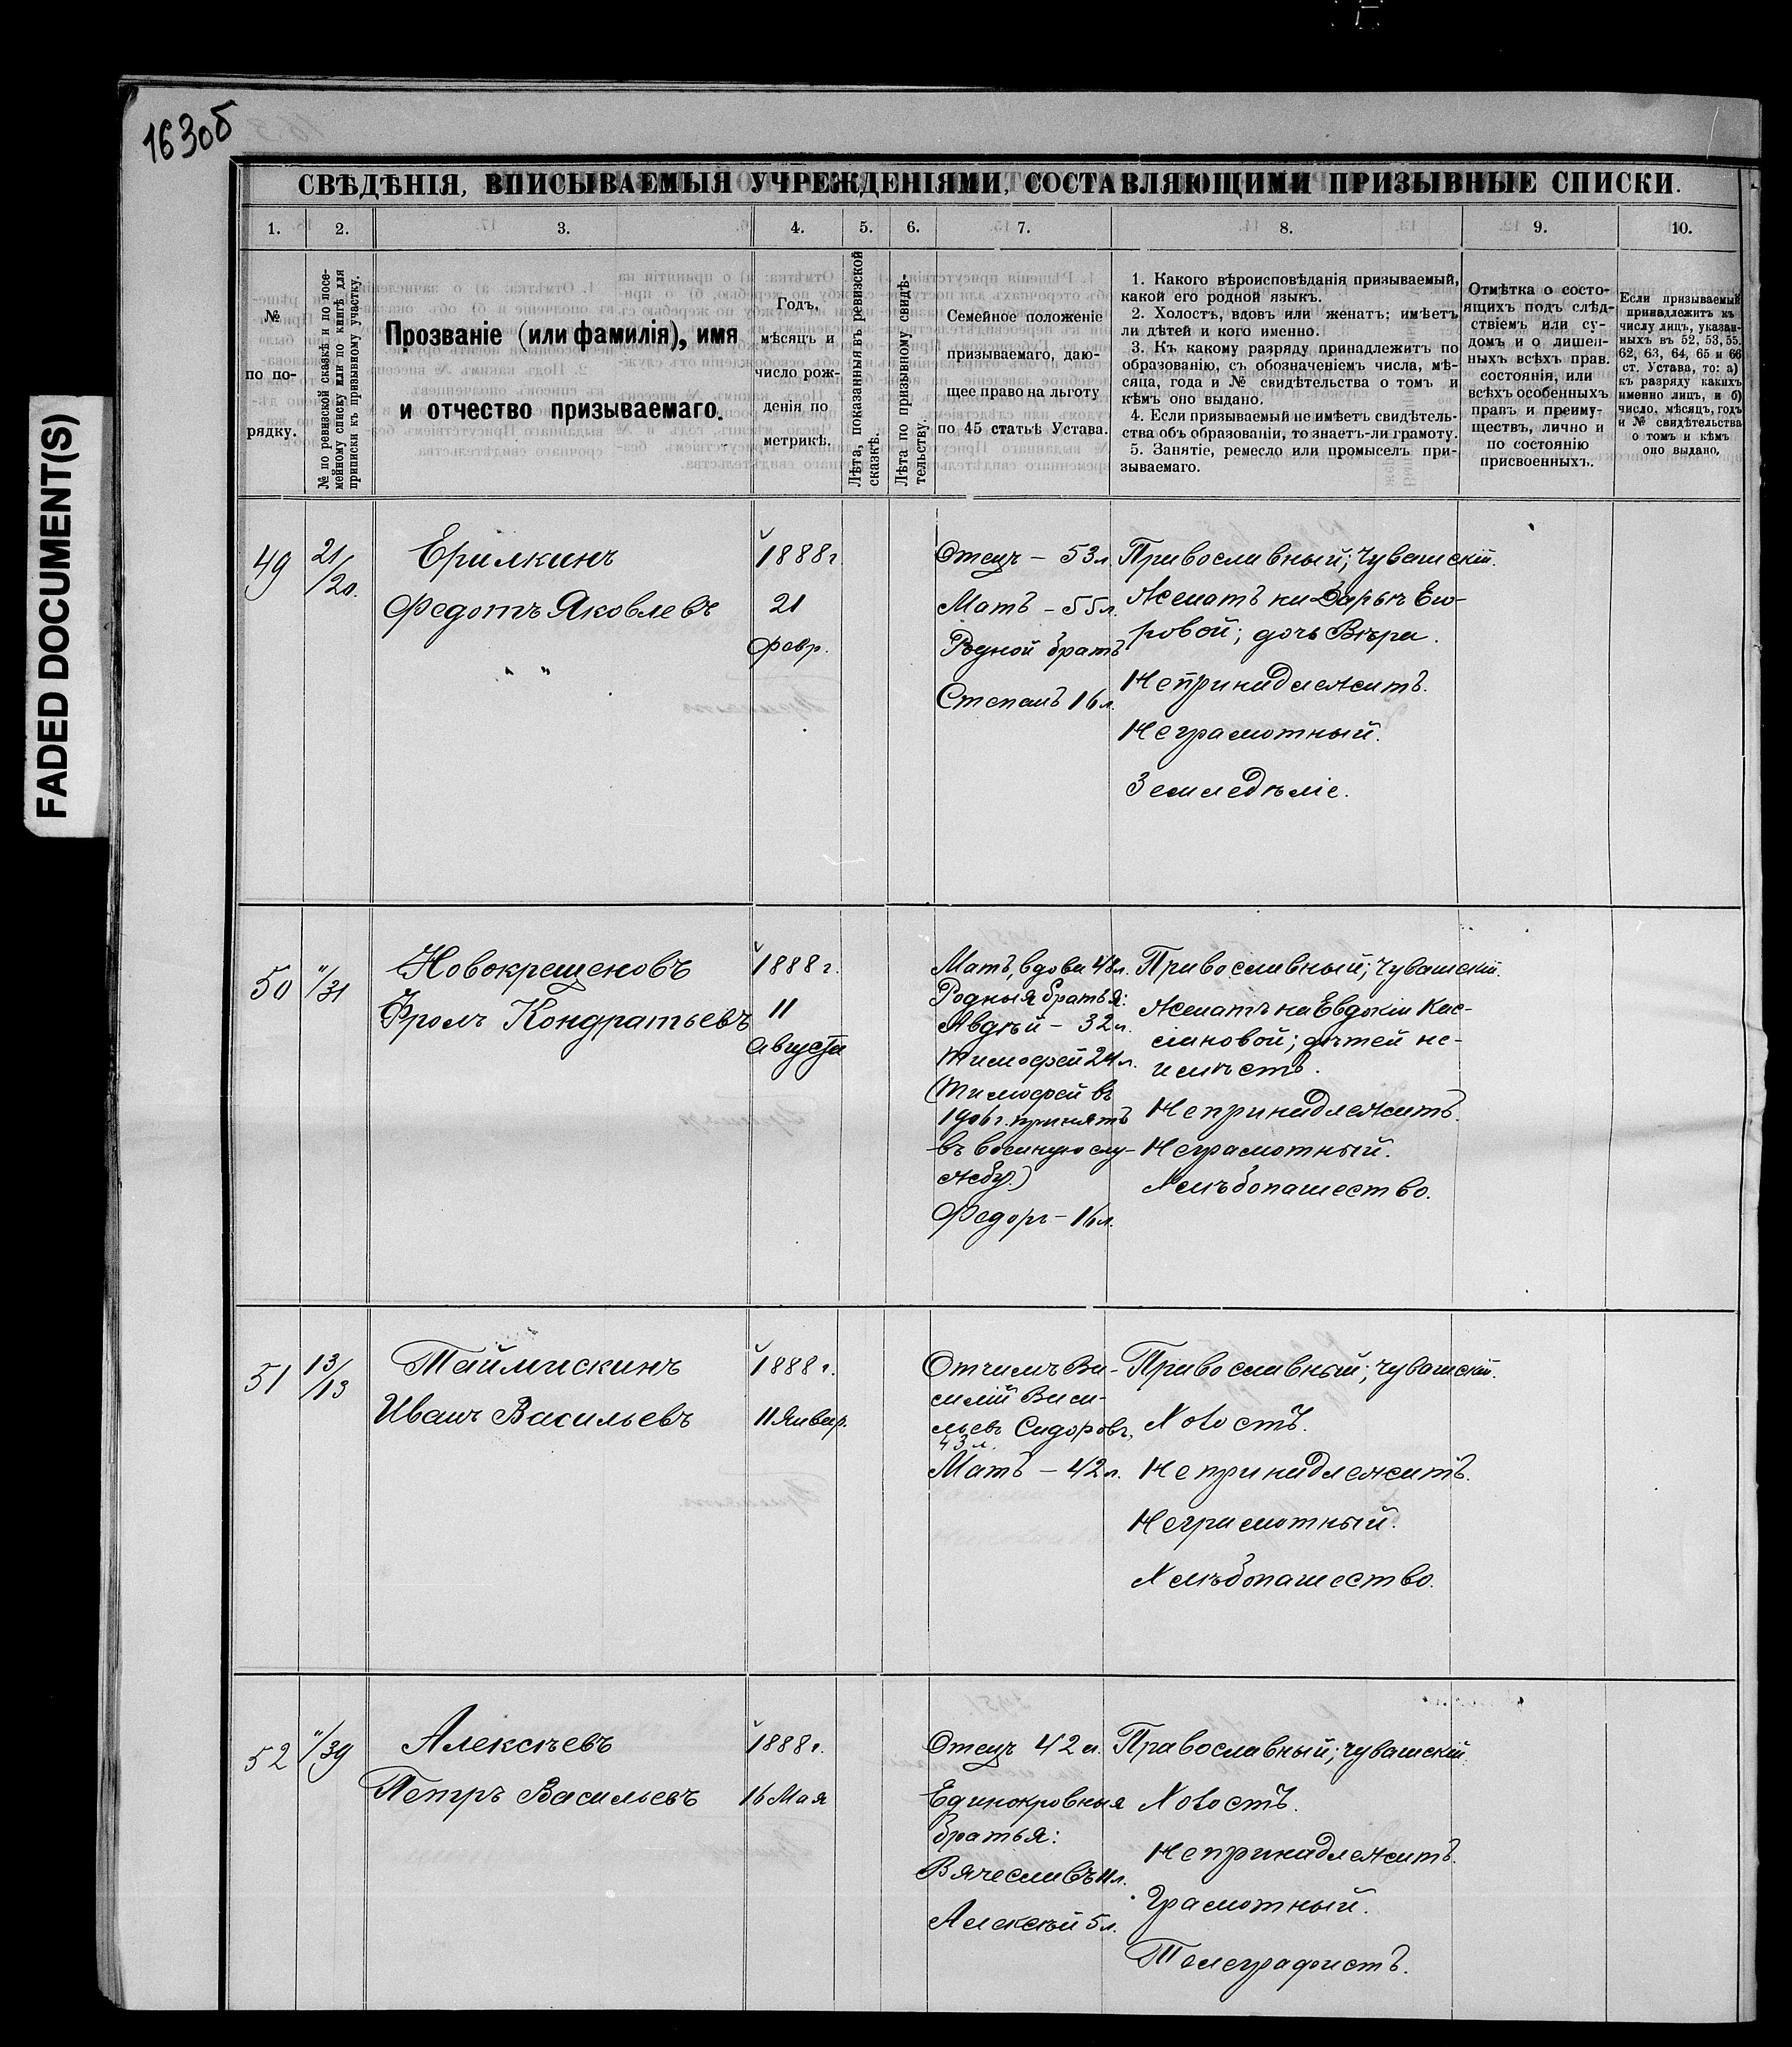 163об
FADED DOCUMENT(S)
СВѢДѢНІЯ, ВПИСЫВАЕМЫЯ УЧРЕЖДЕНІЯМИ, СОСТАВЛЯЮЩИМИ ПРИЗЫВНЫЕ СПИСКИ.
1. 2. 3. 4. 5. 6. 7. 8. 9. 10.
№
по по-
рядку.
№ по ревизской сказкѣ и по посе-
мейному списку или по книгѣ для
приписки къ призывному участку.
Прозваніе (или фамилія), имя
и отчество призываемаго.
Годъ,
мѣсяцъ и
число рож-
денія по
метрикѣ.
Лѣта, показанныя въ ревизской
сказкѣ.
Лѣта по призывному свидѣ-
тельству.
Семейное положеніе
призываемаго, даю-
щее право на льготу
по 45 статьѣ Устава.
1. Какого вѣроисповѣданія призываемый,
какой его родной языкъ.
2. Холостъ, вдовъ или женатъ; имѣетъ
ли дѣтей и кого именно.
3. Къ какому разряду принадлежитъ по
образованію, съ обозначеніемъ числа, мѣ-
сяца, года и № свидѣтельства о томъ и
кѣмъ оно выдано.
4. Если призываемый не имѣетъ свидѣтель-
ства объ образованіи, то знаетъ-ли грамоту.
5. Занятіе, ремесло или промыселъ при-
зываемаго.
Отмѣтка о состо-
ящихъ подъ слѣд-
ствіемъ или су-
домъ и о лишен-
ныхъ всѣхъ прав.
состоянія, или
всѣхъ особенныхъ
правъ и преиму-
ществъ, лично и
по состоянію
присвоенныхъ.
Если призываемый
принадлежитъ къ
числу лицъ, указан-
ныхъ въ 52, 53, 55,
62, 63, 64, 65 и 66
ст. Устава, то: а)
къ разряду какихъ
именно лицъ, и б)
число, мѣсяцъ, годъ
и № свидѣтельства
о томъ и кѣмъ
оно выдано.
49
21/20.
Ерилкинъ
Федотъ Яковлевъ
" "
1888г
21
февр.
Отецъ – 53 л.
Мать – 55 л.
Родной братъ
Степанъ 16 л.
Православный; Чувашскій.
Женатъ на Дарьѣ Его-
ровой; дочь Вѣра.
Непринадлежитъ.
Неграмотный.
Земледѣліе.
50
"/31
Новокрещеновъ
Фролъ Кондратьевъ
1888 г.
11
Августа
Мать, вдова 48 л.
Родныя братья:
Авдѣй – 32 л.
Тимофей 24 л.
(Тимофей въ
1906 г. принятъ
въ военную слу-
жбу.)
Федоръ – 16 л.
Православный; Чувашскій.
Женатъ на Евдокіи Кас-
сіановой; дѣтей не-
имѣетъ.
Непринадлежитъ.
Неграмотный.
Хлѣбопашество.
51
13/13
Таймискинъ
Иванъ Васильевъ
1888 г.
11 Январ.
Отчимъ Ва-
силій Васи-
льевъ Сидоровъ,
43 л.
Мать – 42 л.
Православный; Чувашскій.
Холостъ.
Непринадлежитъ.
Неграмотный.
Хлѣбопашество.
52
"/39
Алексѣевъ
Петръ Васильевъ
1888 г.
16 Мая
Отецъ 42 л.
Единокровныя
братья:
Вячеславъ 11 л.
Алексѣй 5 л.
Православный; Чувашскій.
Холостъ.
Непринадлежитъ.
Грамотный.
Телеграфистъ.